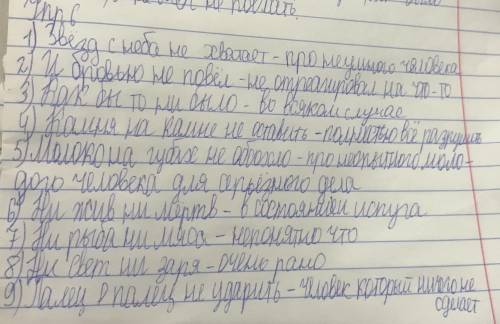 Упр 6
1) Звёзд с неба не хватает - про не умного человека
2) И бровью не повёл - не отреагировал на что-то
3) Как бы то ни было - во всяком случае
4) Камня на камне не оставить - полностью всё разрушить
5) Молоко на губах не обсохло - про неопытного моло-
дого человека для серьёзного дела
6) Ни жив ни мёртв - в состоянии испуга
7) Ни рыба ни мясо - непонятно что
8) Ни свет ни заря - очень рано
9) Палец о палец не ударить - человек который ничего не
сделает